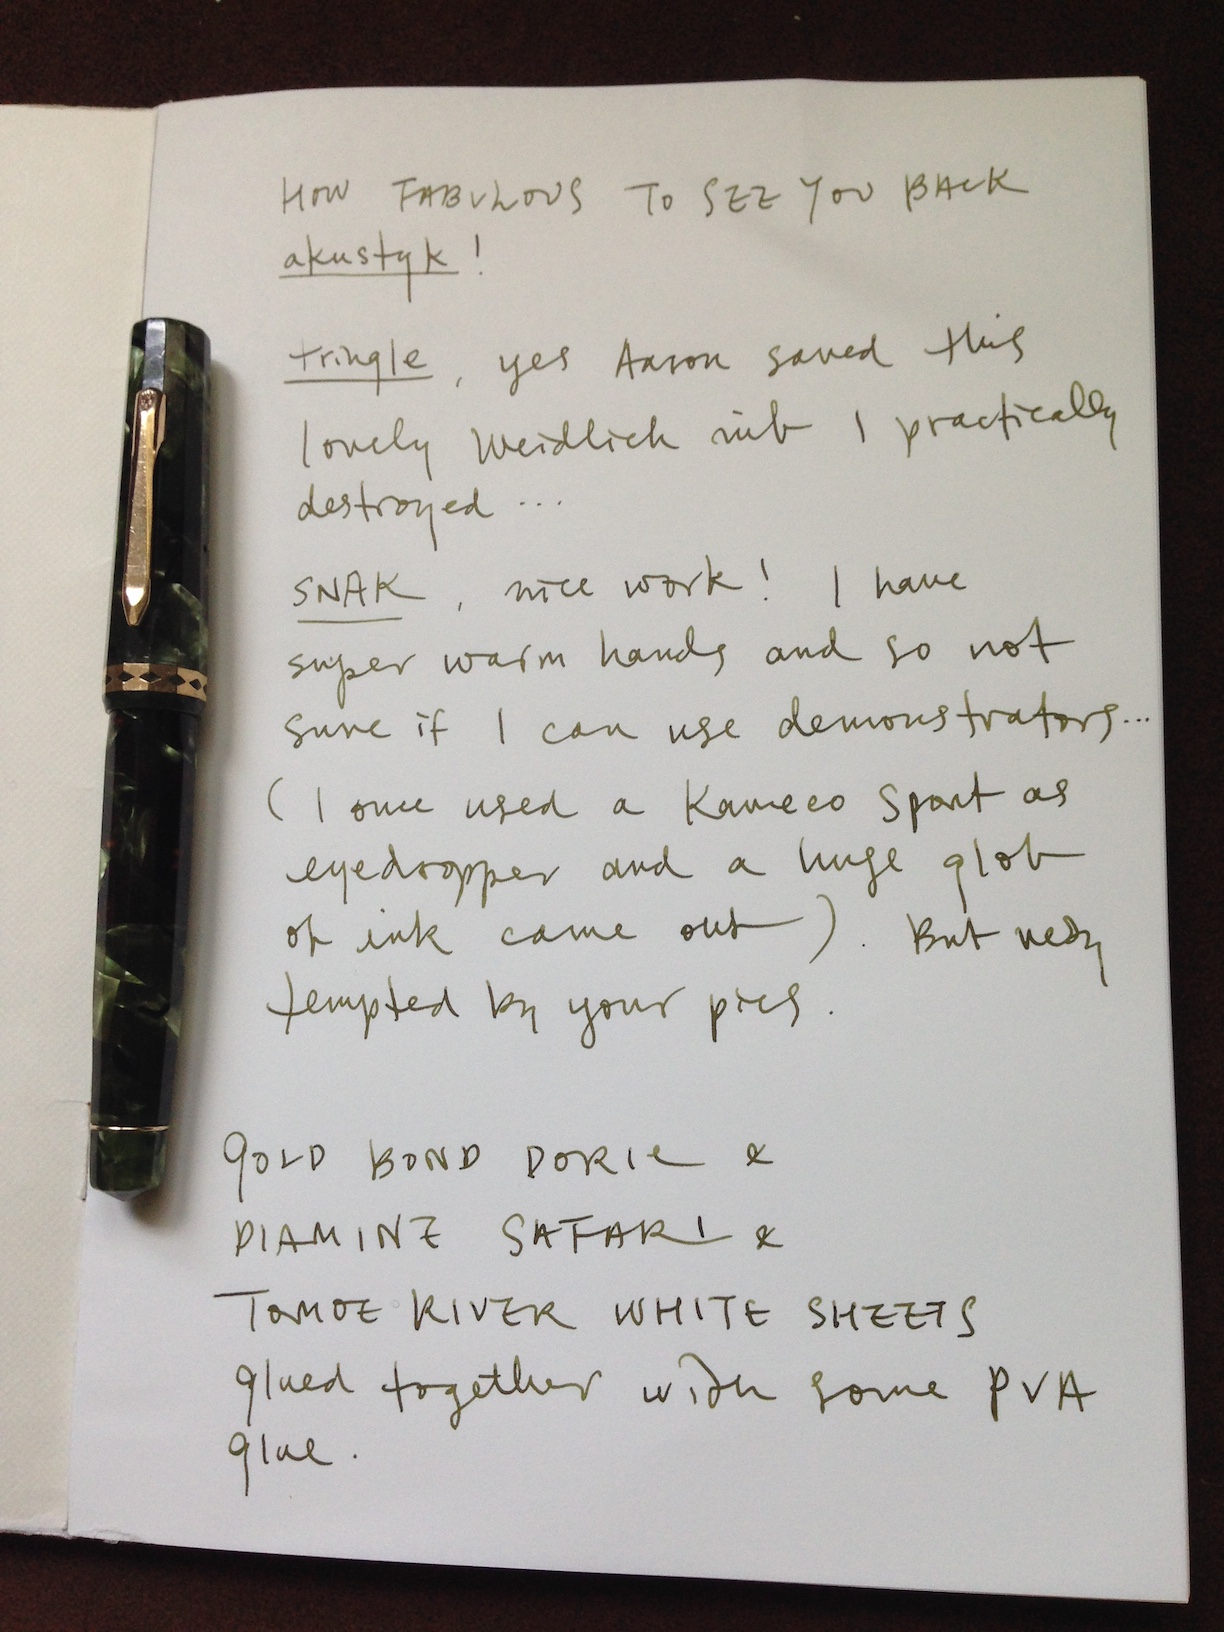 HOW FABULOUS TO SEE YOU BACK
akustyk!
tringle, yes Aaron saved this
lovely Weidlich nib I practically
destroyed ...
SNAK, nice work! I have
super warm hands and so not
sure if I can use demonstrators...
(I once used a Kaweco Sport as
eyedropper and a huge glob
of ink came out). But very
tempted by your pics.
GOLD BOND DORIC &
DIAMINE SAFARI &
TOMOE RIVER WHITE SHEETS
glued together with some PVA
glue.